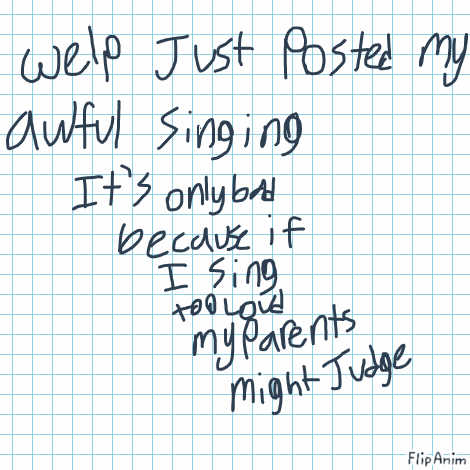 welp Just Posted my
awful singing
It's only bad
because if
I sing
too Loud
my Parents
might Judge
FlipAnim